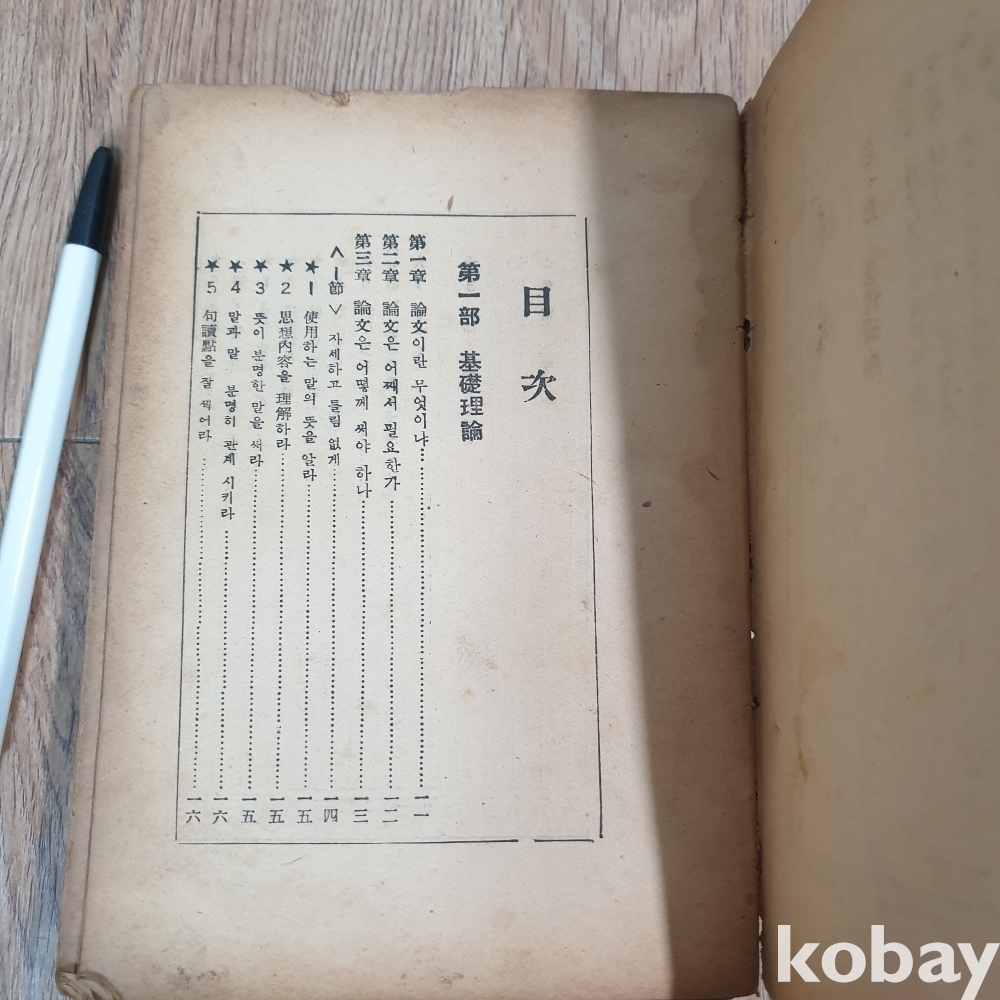 目次
第一部 基礎理論
第一章 論文이란 무엇이냐……一一
第二章 論文은 어째서 필요한가……一二
第三章 論文은 어떻게 써야 하나……一三
<1節> 자세하고 틀림 없게……一四
★1 使用하는 말의 뜻을 알라……一五
★2 思想內容을 理解하라……一五
★3 뜻이 분명한 말을 써라……一五
★4 말과 말 분명히 관계 시키라……一六
★5 句讀點을 잘 찍어라……一六
kobay